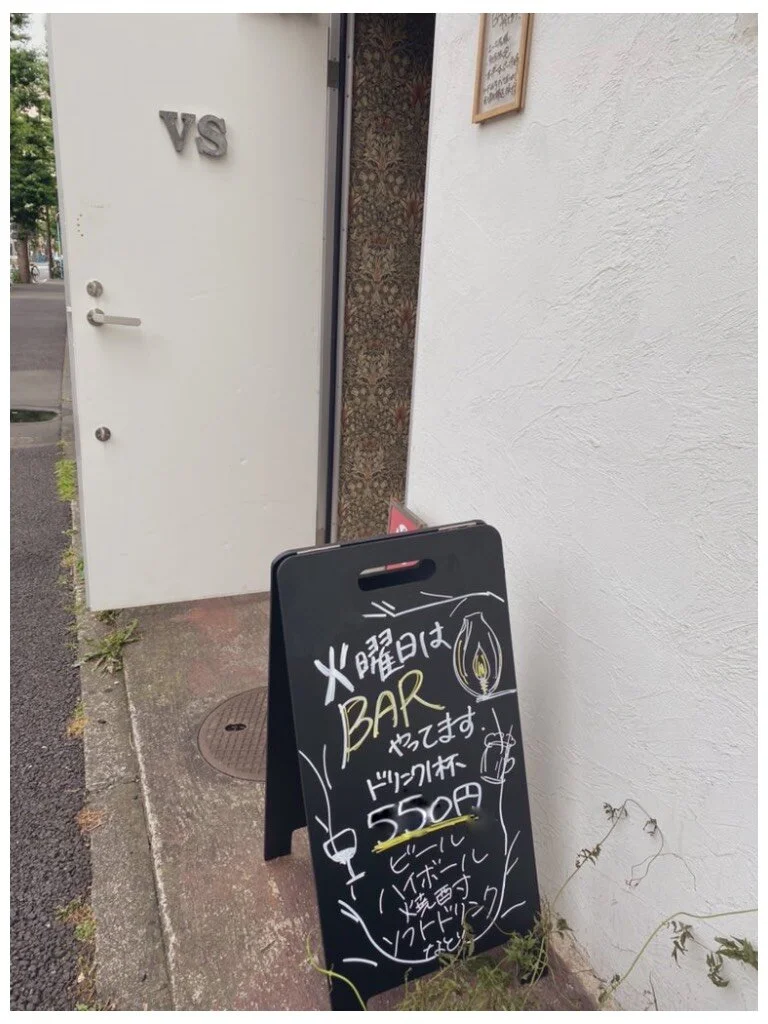 VS
火曜日は
BAR
やってます
ドリンク1杯
550円
ビール
ハイボール
焼酎
ソフトドリンク
など